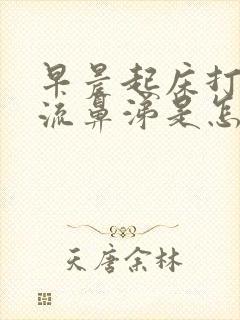 早晨起床打
流鼻涕是怎
天唐余林